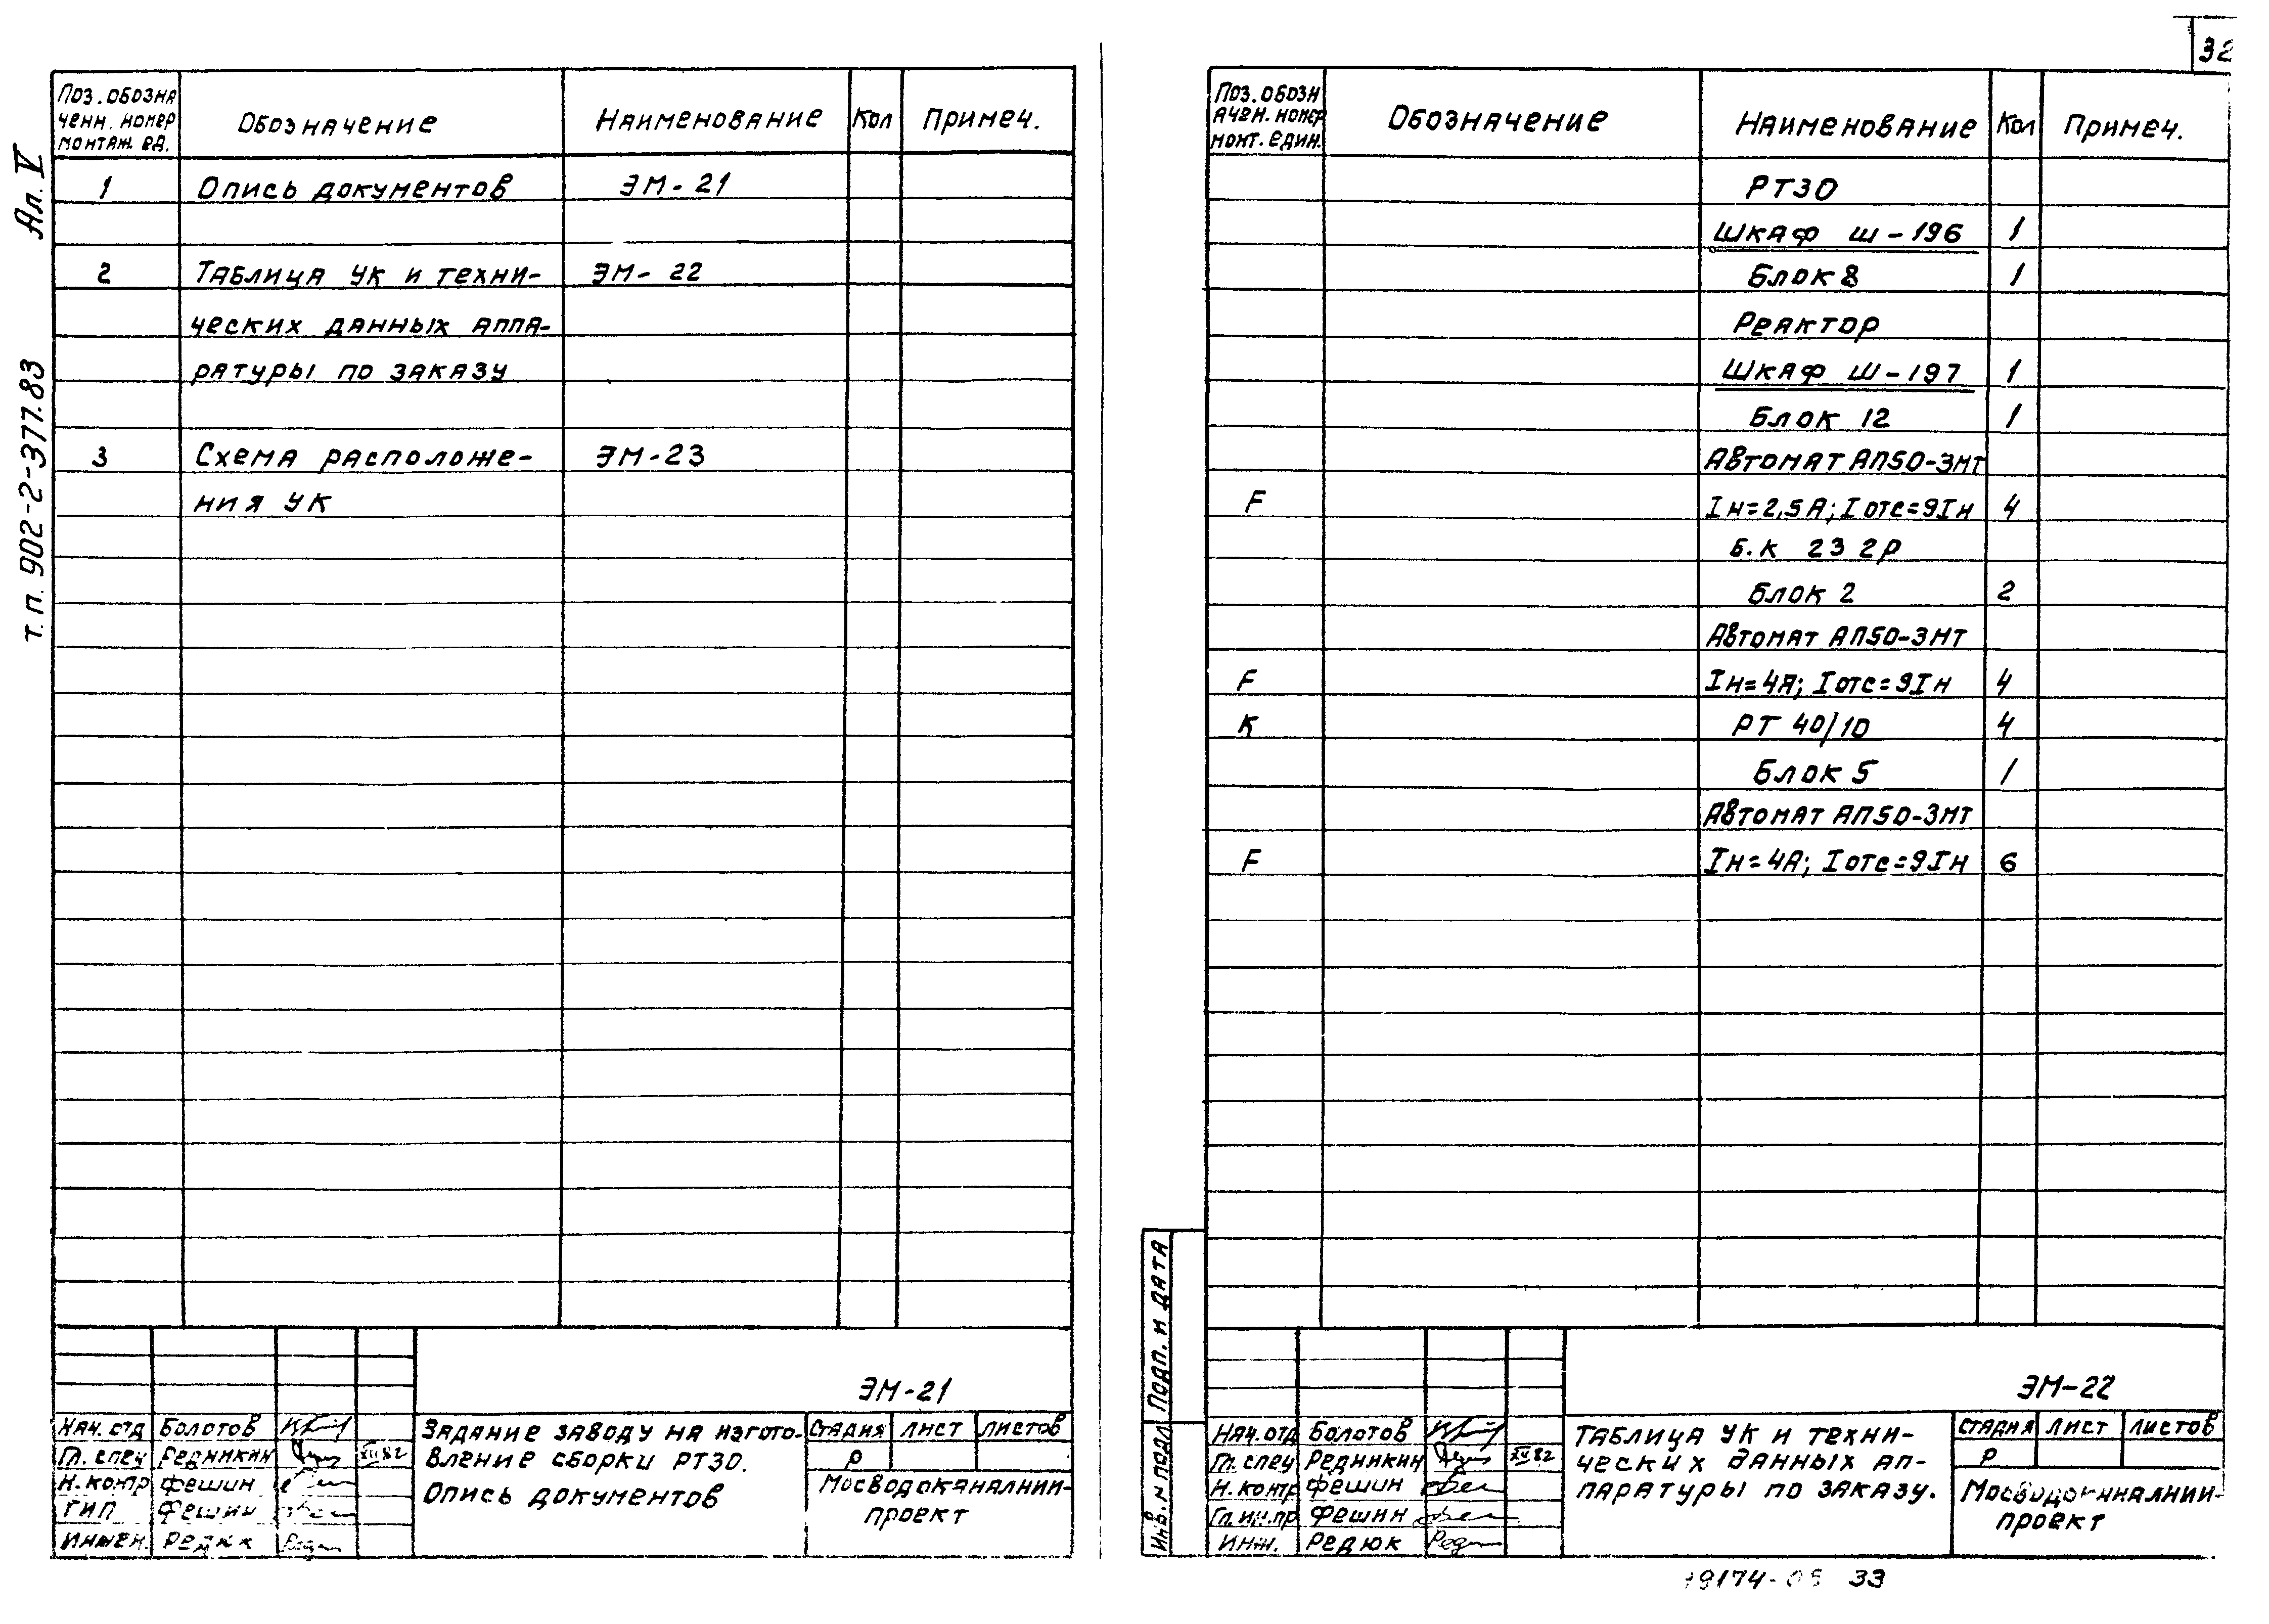 32
Ал. V
т. п. 902-2-377.83
Поз. обозна
ченн. номер
монтаж. ед.
Обозначение
Наименование
Кол
Примеч.
1 Опись документов ЭМ-21
2 Таблица УК и техни- ЭМ-22
ческих данных аппа-
ратуры по заказу
3 Схема расположе- ЭМ-23
ния УК
ЭМ-21
Нач. отд Болотов
Гл. спец Редникин XII 82
Н. контр Фешин
ГИП Фешин
Инжен. Редюк
Задание заводу на изгото-
вление сборки РТ30.
Опись документов
Стадия Лист Листов
Р
Мосводоканалнии-
проект
Поз. обозн
ачен. номер
монт. един.
Обозначение
Наименование
Кол
Примеч.
РТ30
Шкаф Ш-196 1
Блок 8 1
Реактор
Шкаф Ш-197 1
Блок 12 1
Автомат АП50-3МТ
F Iн=2,5А; Iотс=9Iн 4
Б.К 23 2р
Блок 2 2
Автомат АП50-3МТ
F Iн=4А; Iотс=9Iн 4
К РТ 40/10 4
Блок 5 1
Автомат АП50-3МТ
F Iн=4А; Iотс=9Iн 6
Подп. и дата
Инв. н подл
ЭМ-22
Нач. отд Болотов
Гл. спец Редникин XII 82
Н. контр Фешин
Гл. ин. пр Фешин
Инж. Редюк
Таблица УК и техни-
ческих данных ап-
паратуры по заказу.
Стадия Лист Листов
Р
Мосводоканалнии-
проект
19174-05 33